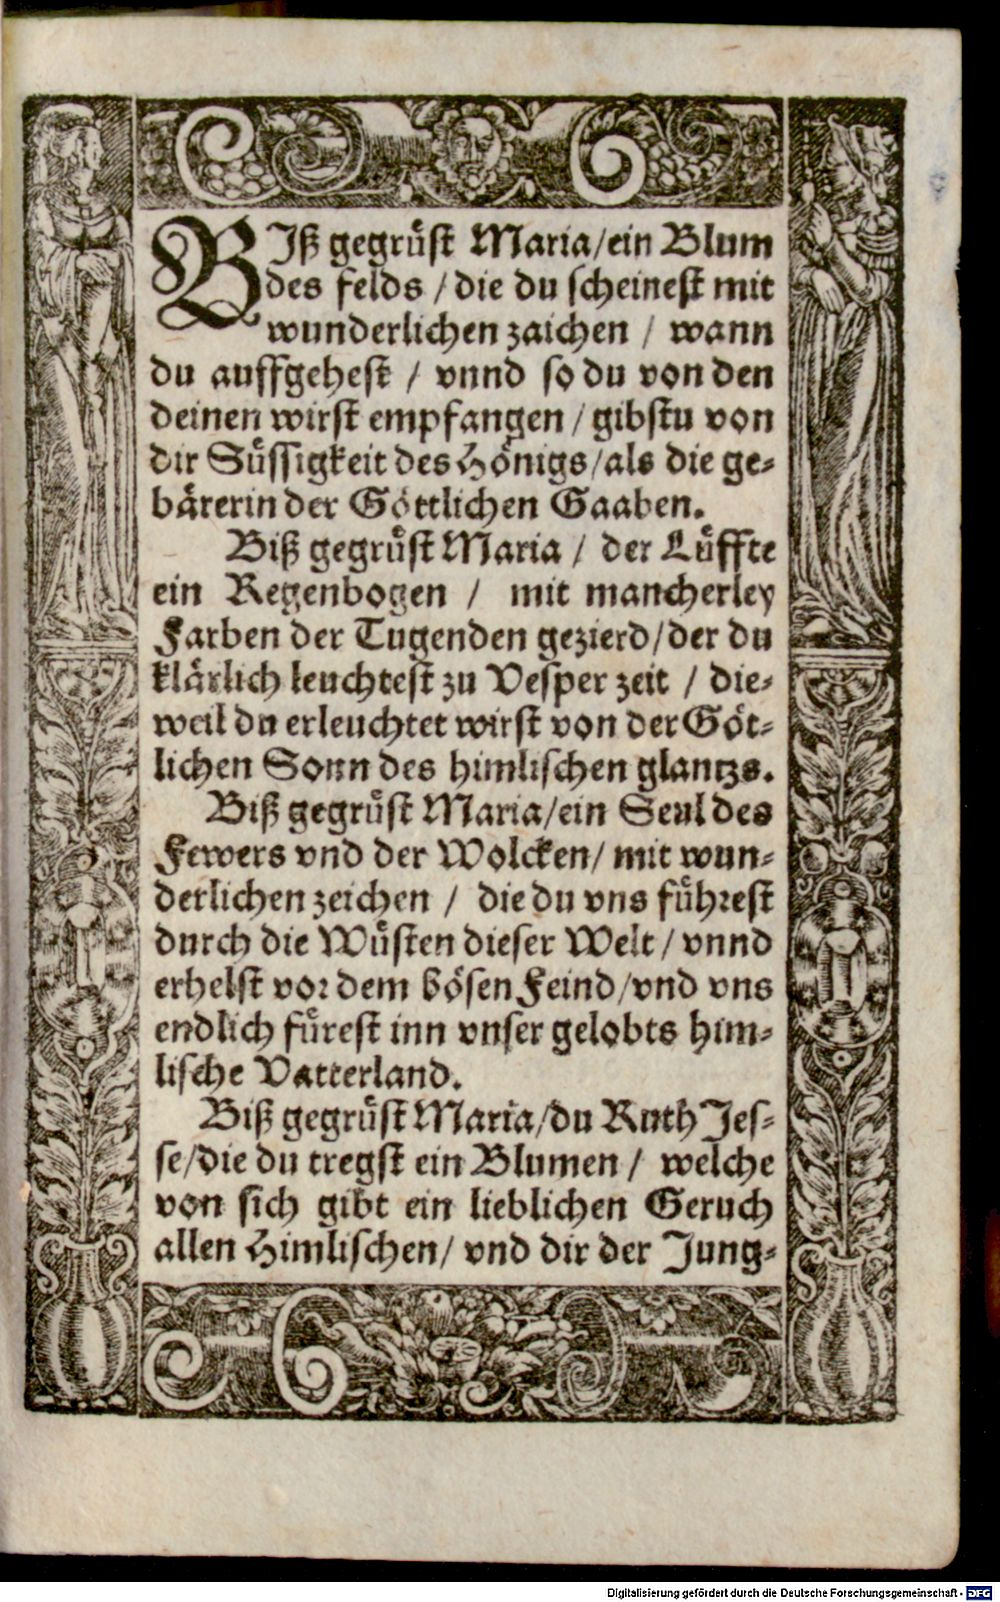 BJß gegrüst Maria/ein Blum
des felds / die du scheinest mit
wunderlichen zaichen / wann
du auffgehest / vnnd so du von den
deinen wirst empfangen / gibstu von
dir Süssigkeit des Hönigs/als die ge-
bärerin der Göttlichen Gaaben.
Biß gegrüst Maria / der Lüffte
ein Regenbogen / mit mancherley
Farben der Tugenden gezierd/der du
klärlich leuchtest zu Vesper zeit / die-
weil du erleuchtet wirst von der Göt-
lichen Sonn des himlischen glantzs.
Biß gegrüst Maria/ein Seul des
Fewers vnd der Wolcken/ mit wun-
derlichen zeichen / die du vns führest
durch die Wüsten dieser Welt / vnnd
erhelst vor dem bösen Feind/vnd vns
endlich fürest inn vnser gelobts him-
lische Vatterland.
Biß gegrüst Maria/du Ruth Jes-
se/die du tregst ein Blumen / welche
von sich gibt ein lieblichen Geruch
allen Himlischen/ vnd dir der Jung-
Digitalisierung gefördert durch die Deutsche Forschungsgemeinschaft - DFG